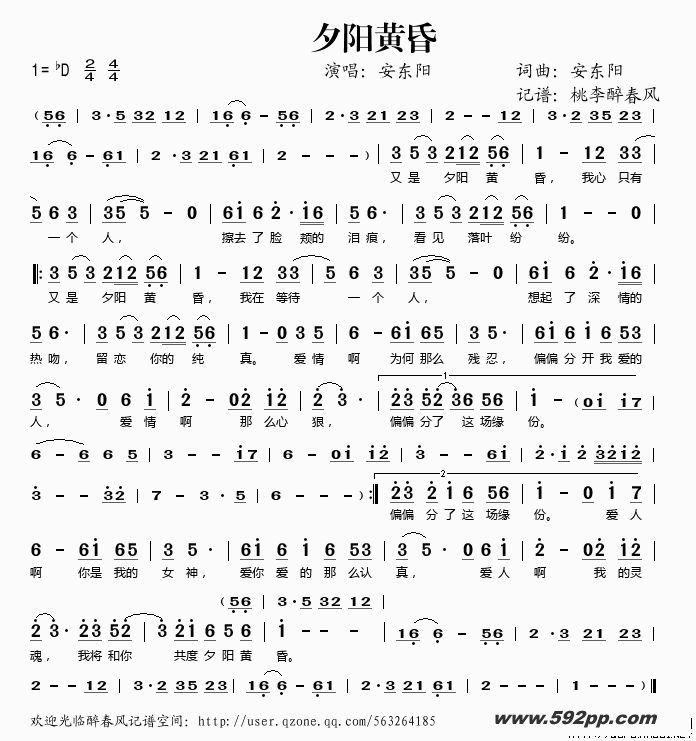 夕阳黄昏
1=♭D 2/4 4/4 演唱：安东阳 词曲：安东阳
记谱：桃李醉春风
(56 | 3·5 32 12 | 16 6 - 56 | 2·3 21 23 | 2 - - 12 | 3·2 35 23 |
16 6 - 61 | 2·3 21 61 | 2 - - ) | 3 5 3 212 56 | 1 - 12 33 |
又是 夕阳 黄 昏， 我心 只有
5 6 3 | 35 5 - 0 | 61 6 2· 16 | 5 6· | 3 5 3 212 56 | 1 - - 0 |
一个 人， 擦去了脸 颊的 泪痕， 看见 落叶 纷 纷。
3 5 3 212 56 | 1 - 12 33 | 5 6 3 | 35 5 - 0 | 61 6 2· 16 |
又是 夕阳 黄 昏， 我在 等待 一个 人， 想起 了 深 情的
5 6· | 3 5 3 212 56 | 1 - 0 3 5 | 6 - 61 65 | 3 5· | 61 6 16 53 |
热吻， 留恋 你的 纯 真。 爱情 啊 为何那么 残忍， 偏偏分开我爱的
1
3 5· 0 6 1 | 2 - 02 12 | 2 3· | 23 52 36 56 | 1 - (01 17 |
人， 爱情 啊 那么心 狠， 偏偏分了 这场缘 份。
6 - 6 65 5 | 3 - - 17 | 6 - 01 12 | 3 - - 61 | 2·12 3212 |
2
3 - - 32 | 7 - 3·5 | 6 - - - ) :| 23 2 1 6 56 | 1 - 0 1 7 |
偏偏 分了这 场缘 份。 爱人
6 - 61 65 | 3 5· | 61 6 1 6 53 | 3 5· 0 6 1 | 2 - 02 12 |
啊 你是我的 女神， 爱你 爱的那么认 真， 爱人 啊 我的灵
(56 | 3·5 32 12 |
2 3· 23 52 | 3 21 6 5 6 | 1 - - | 16 6 - 56 | 2·3 21 23 |
魂， 我将和你 共度夕阳黄 昏。
2 - - 12 | 3·2 35 23 | 16 6 - 61 | 2·3 21 61 | 2 - - - ) |
欢迎光临醉春风记谱空间：http://user.qzone.qq.com/563264185
www.592pp.com